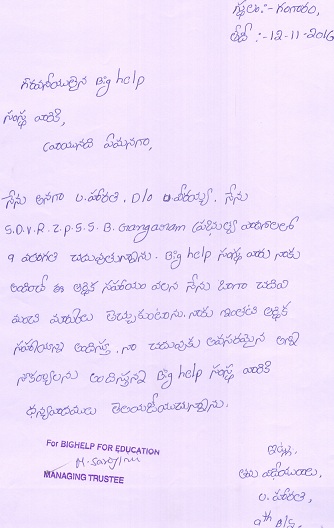 స్థలం:- గంగారం,
తేదీ :- 12-11-2016
గౌరవనీయులైన Big help
సంస్థ వారికి,
వ్రాయునది ఏమనగా,
నేను అనగా ఎ.హారతి. D/o ఎ.వీరయ్య. నేను
S.D.V.R.Z.P.S.S. B. Gangaram ప్రభుత్వ పాఠశాలలో
9 వ తరగతి చదువుతున్నాను. Big help సంస్థ వారు నాకు
అందించే ఈ ఆర్థిక సహాయం వలన నేను బాగా చదివి
మంచి మార్కులు తెచ్చుకుంటాను. నాకు ఇంతటి ఆర్థిక
సహాయాన్ని అందిస్తూ, నా చదువుకు అవసరమైన అన్ని
సౌకర్యాలను అందిస్తున్న Big help సంస్థ వారికి
ధన్యవాదములు తెలియజేయుచున్నాను.
For BIGHELP FOR EDUCATION
MANAGING TRUSTEE
ఇట్లు,
తమ విధేయురాలు,
ఎ. హారతి,
9th